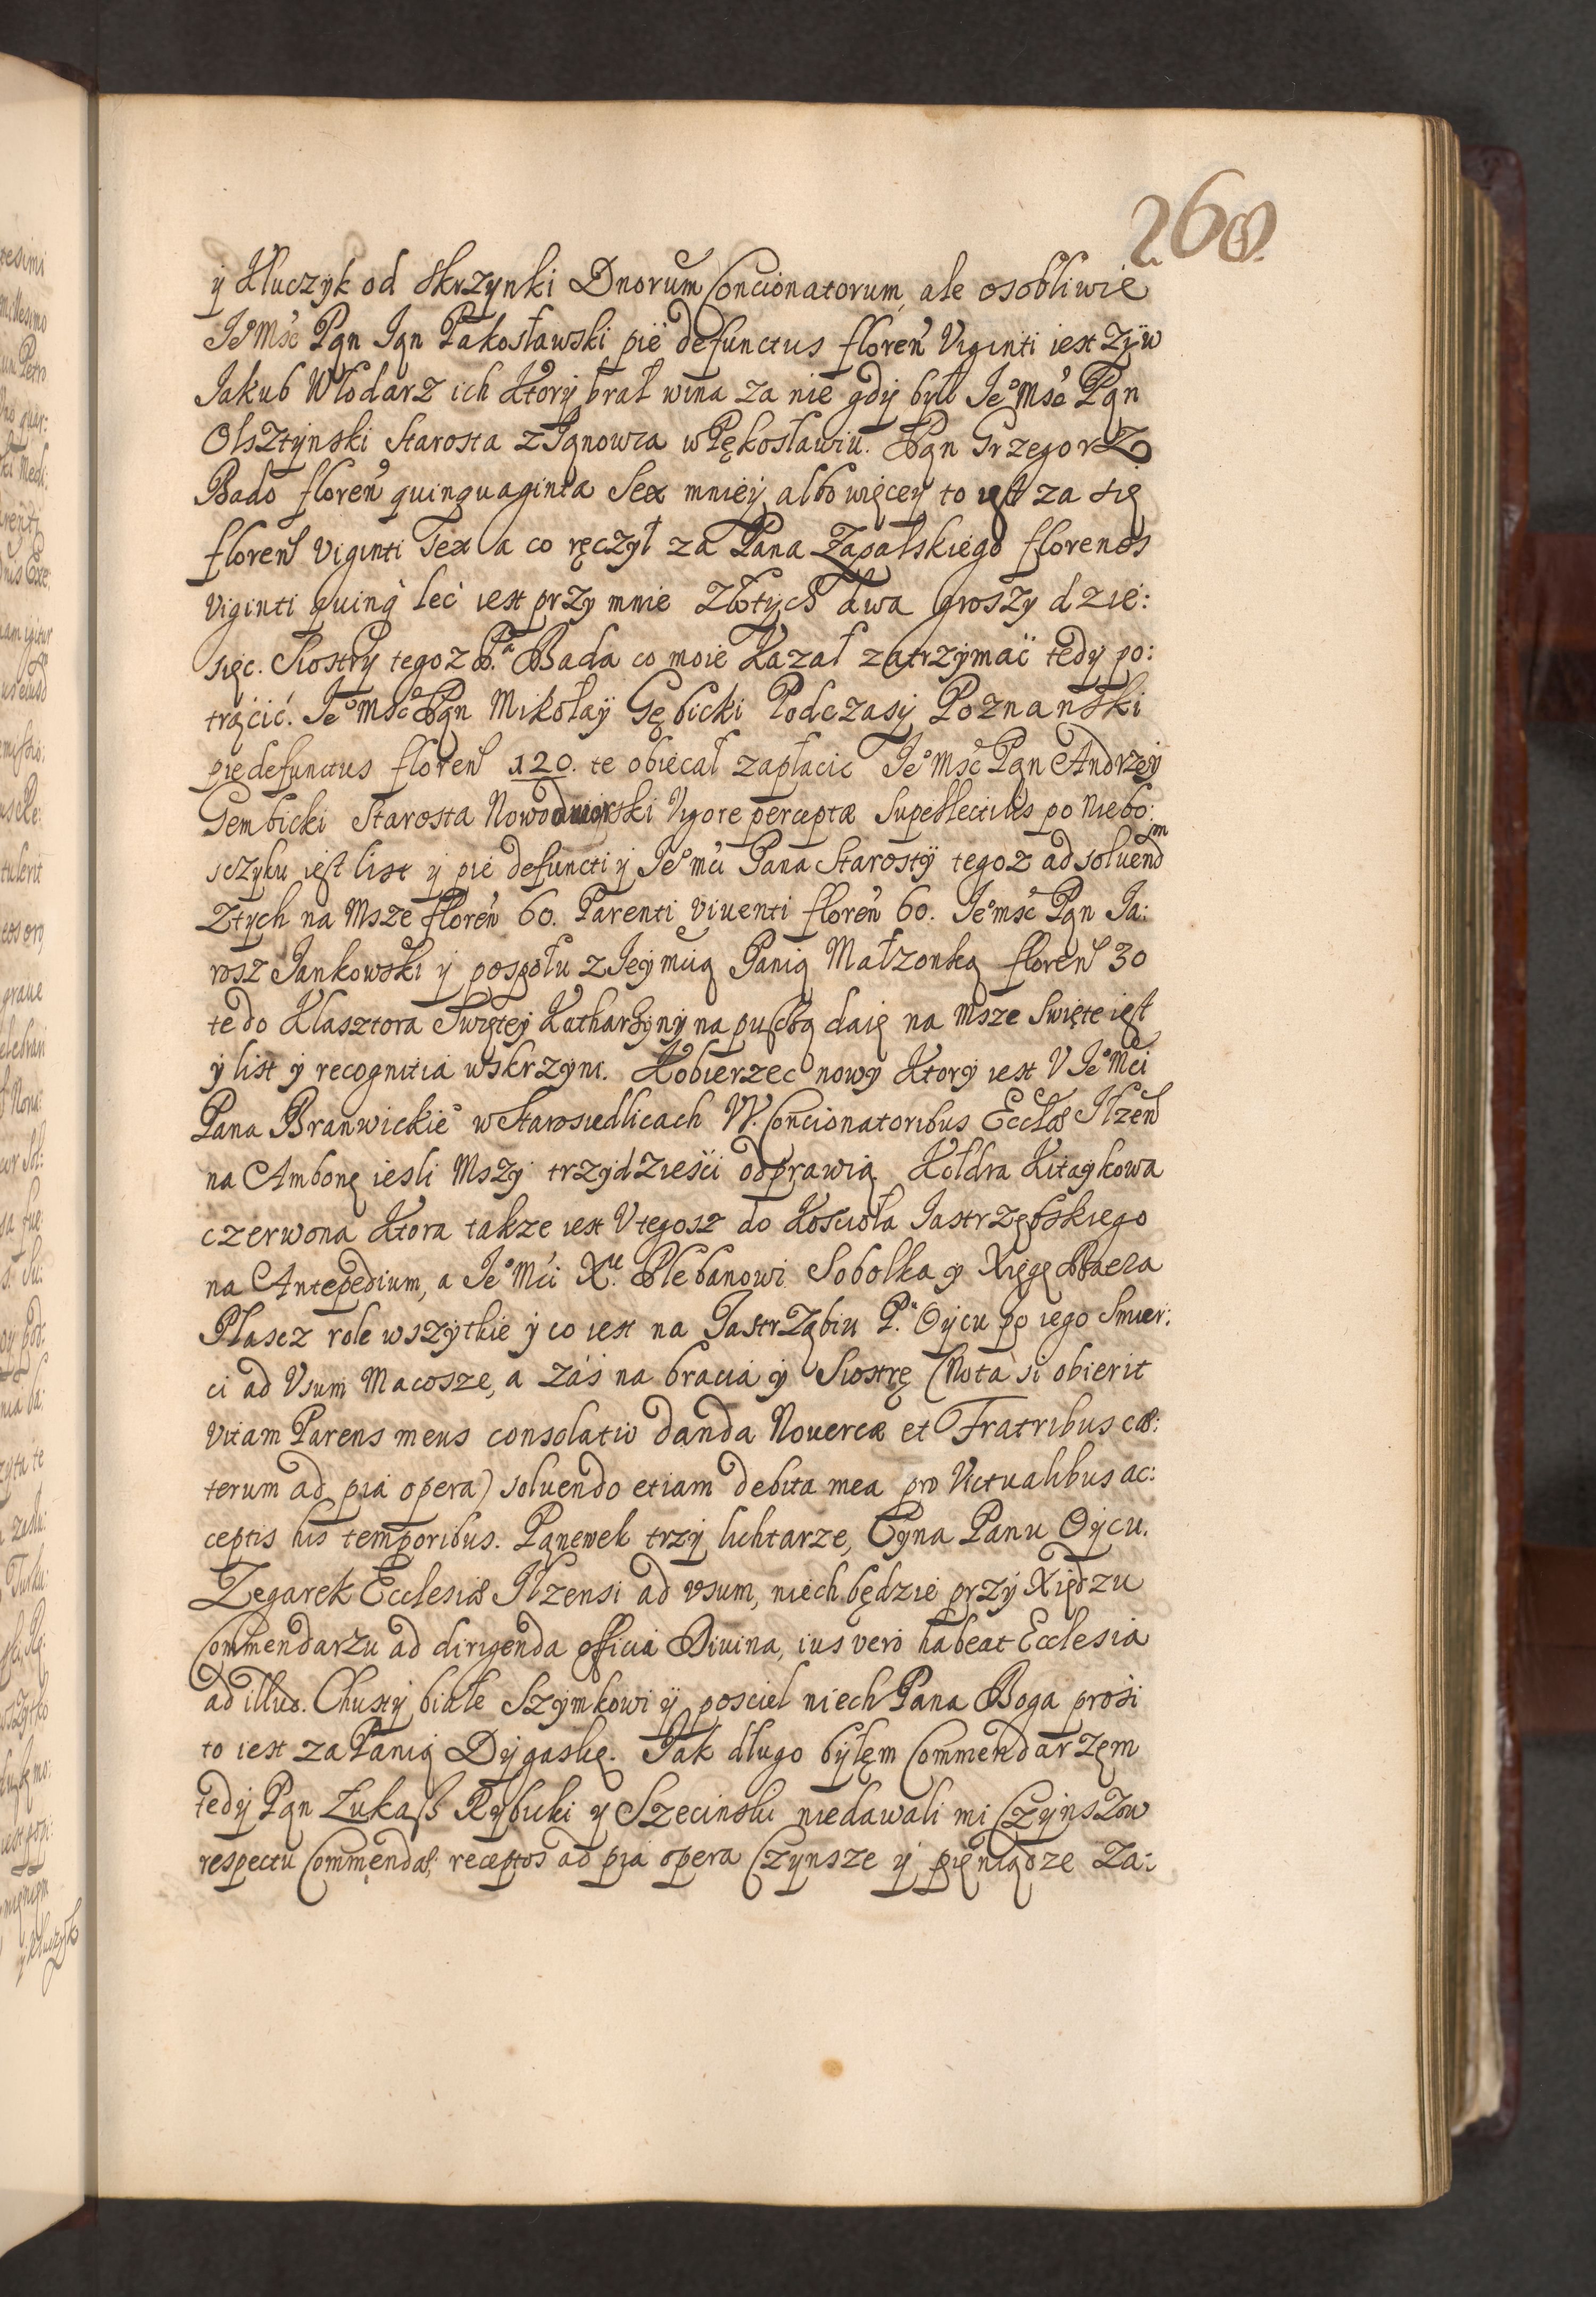 268.
ÿ Kluczyk od skrzynki Dnorum Concionatorum, ale osobliwie
Jeͦ Mść Pąn Jąn Pakosławski pie defunctus floreń Viginti iest zÿw
Jakub Włodarz ich Ktorÿ brał wina za nie gdÿ był Jeͦ Mść Pąn
Olsztÿnski Starosta z Jąnowca w Pękosławiu. Pąn Grzegorz
Bado floreń quinquaginta Sex mnieÿ albo więceÿ to iest za się
floreń Viginti Sex a co ręczył za Pana Zapalskiego florenos
Viginti quinq̀ leć iest przy mnie Złotÿch dwa groszy dzie:
sięc. Siostrÿ tegoz P.ª Bada co moie Kazał zatrzÿmać tedÿ po:
trącić. Jeͦ Mść Pąn Mikołaÿ Gębicki Podczasÿ Poznański
pie defunctus floreń 120. te obiecał zapłacic Jeͦ Mść Pąn Andrzeÿ
Gembicki Starosta Nowodworski Vigore perceptæ Supellectilis po niebo:
sczyku iest list ÿ pie defuncti ÿ Jeͦ mći Pana Starostÿ tegoz ad soluendm
Ztych na Msze floreń 60. Parenti viuenti floreń 60. Jeͦ mść Pąn Ja:
rosz Jankowski ÿ pospołu z Jeÿmcią Panią Małzonką floreń 30
te do Klasztora Swiętey Katharzÿnÿ na puscką daię na Msze Swięte iest
ÿ list ÿ recognitia wskrzyni. Kobierzec nowÿ Ktorÿ iest V Jeͦ Mći
Pana Branwickieͦ w Starosiedlicach VV. Concionatoribus Ecclæ Ilzeń
na Ambonę iesli Mszÿ trzÿdzieści odprawią. Kołdra Kitaÿkowa
czerwona Ktora takze iest V tegosz do Kościoła Jastrzębskiego
na Antepedium, a Jeͦ Mći X.u Plebanowi Sobolka ÿ Xięgę Baeza
Plascz role wszÿtkie ÿ co iest na Jastrząbiu P.u Oÿcu po iego Smier:
ci ad Vsum Macosze, a zaś na bracia ÿ Siostrę (Nota si obierit
Vitam Parens meus consolatio danda Nouercæ et Fratribus cæ:
terum ad pia opera) soluendo etiam debita mea pro Victualibus ac:
ceptis his temporibus. Pąnewek trzÿ lichtarze, Cyna Panu Oÿcu.
Zegarek Ecclesiæ Ilzensi ad vsum, niech będzie przÿ Xiędzu
Commendarzu ad dirigenda officia Diuina, ius vero habeat Ecclesia
ad illud. Chustÿ białe Szÿmkowi ÿ posciel niech Pana Boga prosi
to iest za Panią Dÿgaskę. Jak długo byłęm Commendarzęm
tedÿ Pąn Łukaß Rÿbicki ÿ Szecinski niedawali mi Czÿnszow
respectu Commęndæ, receptos ad pia opera Czynsze ÿ pieniądze za: